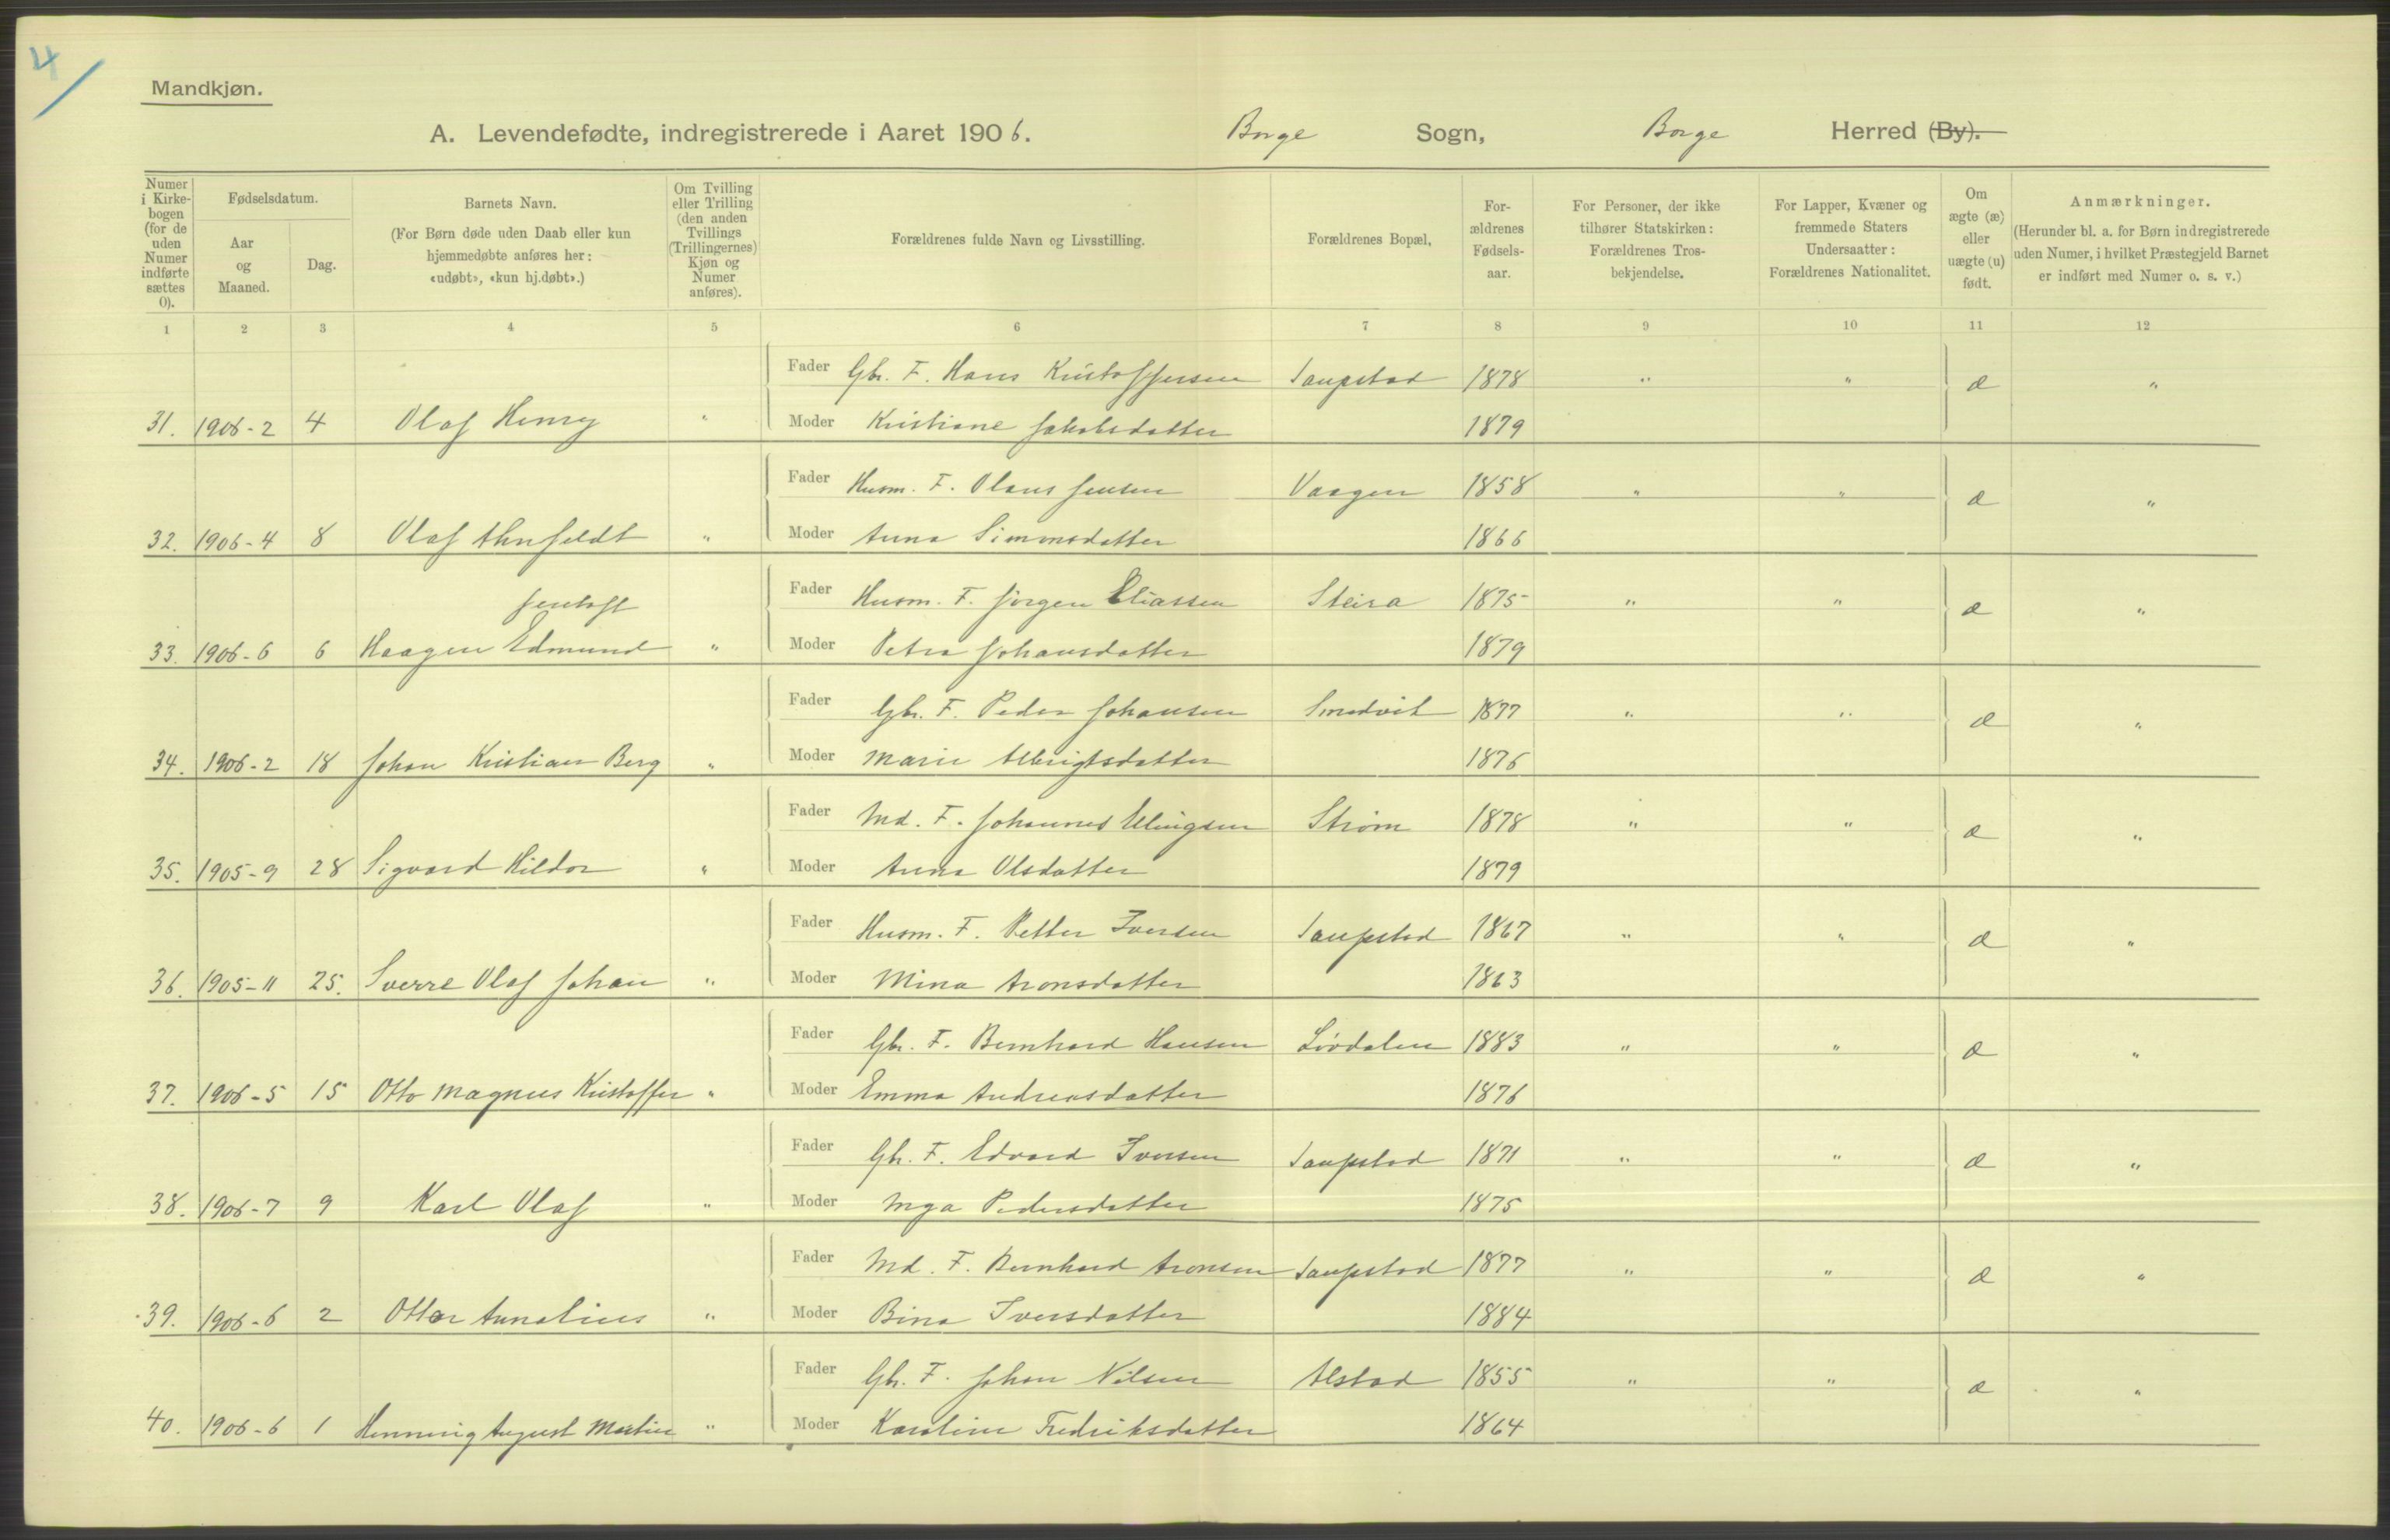 4
Mandkjøn.
A. Levendefødte, indregistrerede i Aaret 1906. Borge Sogn, Borge Herred (By).
Numer i Kirkebogen (for de uden Numer indførte sættes 0).
Fødselsdatum.
Aar og Maaned.
Dag.
Barnets Navn.
(For Børn døde uden Daab eller kun hjemmedøbte anføres her: «udøbt», «kun hj.døbt».)
Om Tvilling eller Trilling (den anden Tvillings (Trillingernes) Kjøn og Numer anføres).
Forældrenes fulde Navn og Livsstilling.
Forældrenes Bopæl.
Forældrenes Fødselsaar.
For Personer, der ikke tilhører Statskirken: Forældrenes Trosbekjendelse.
For Lapper, Kvæner og fremmede Staters Undersaatter: Forældrenes Nationalitet.
Om ægte (æ) eller uægte (u) født.
Anmærkninger.
(Herunder bl. a. for Børn indregistrerede uden Numer, i hvilket Præstegjeld Barnet er indført med Numer o. s. v.)
1 2 3 4 5 6 7 8 9 10 11 12
Fader Gbr. F. Hans Kristoffersen Saupstad 1878 " " æ "
31. 1906-2 4 Olaf Henry " Moder Kristiane Jakobsdatter 1879
Fader Husm. F. Olaus Jensen Vaagen 1858 " " æ "
32. 1906-4 8 Olaf Ahnfeldt " Moder Anna Simonsdatter 1866
Jentoft Fader Husm. F. Jørgen Eliassen Steira 1875 " " æ "
33. 1906-6 6 Haagen Edmund " Moder Petra Johansdatter 1879
Fader Gbr. F. Peder Johansen Smedvik 1877 " " æ "
34. 1906-2 18 Johan Kristian Berg " Moder Marie Albrigtsdatter 1876
Fader Ind. F. Johannes Ellingsen Strøm 1878 " " æ "
35. 1905-9 28 Sigvard Hildor " Moder Anna Olsdatter 1879
Fader Husm. F. Petter Iversen Saupstad 1867 " " æ "
36. 1905-11 25. Sverre Olaf Johan " Moder Mina Aronsdatter 1863
Fader Gbr. F. Bernhard Hansen Livdalen 1883 " " æ "
37. 1906-5 15 Otto Magnus Kristoffer " Moder Emma Andreasdatter 1876
Fader Gbr. F. Edvard Iversen Saupstad 1871 " " æ "
38. 1906-7 9 Karl Olaf " Moder Inga Pedersdatter 1875
Fader Ind. F. Bernhard Aronsen Saupstad 1877 " " æ "
39. 1906-6 2 Ottar Annalius " Moder Bina Iversdatter 1884
Fader Gbr. F. Johan Nilsen Alstad 1855 " " æ "
40. 1906-6 1 Henning August Martin " Moder Karoline Fredriksdatter 1864